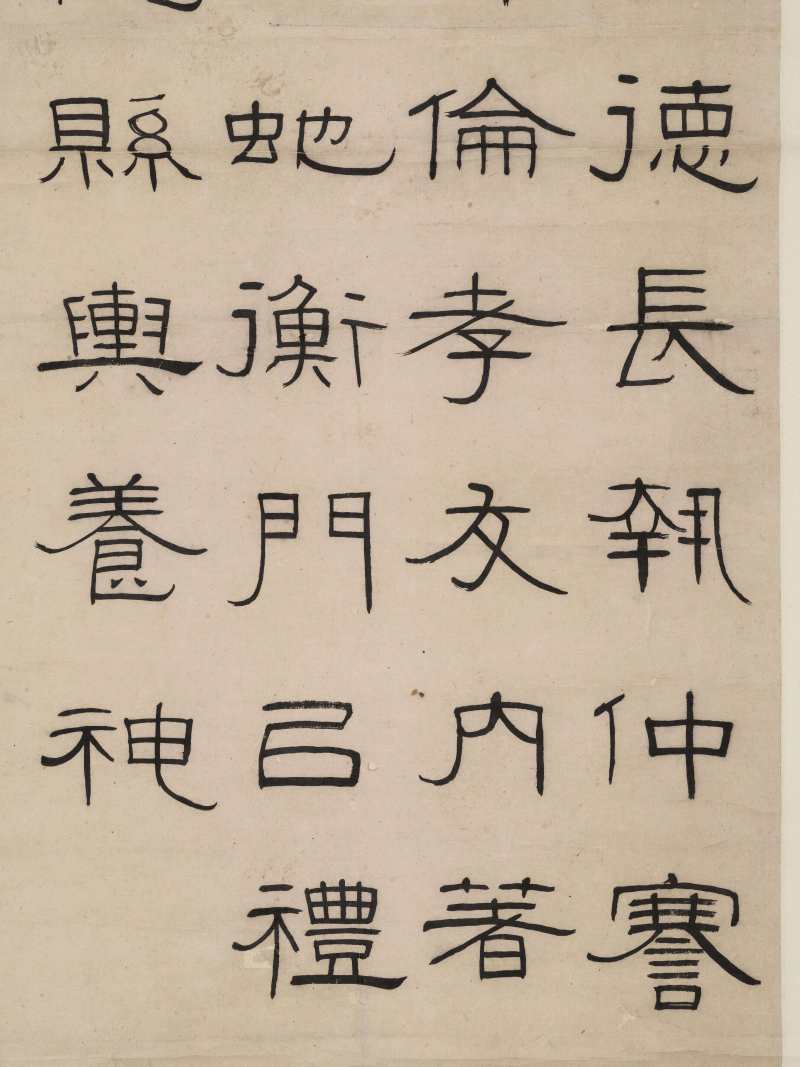 德長執仲謇
倫孝友內著
虵衡門㠯禮
縣輿養神